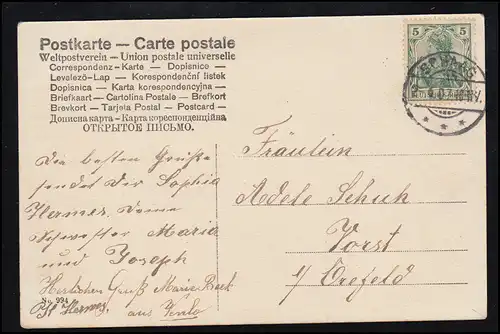 Postkarte — Carte postale
Weltpostverein — Union postale universelle
Correspondenz-Karte — Dopisnice —
Levelező-Lap — Korespondenční listek
Dopisnica — Karta korespondencyjna —
Briefkaart — Cartolina Postale — Brefkort
Brevkort — Tarjeta Postal — Postcard —
Дописна карта — Карта кореспонденційна
ОТКРЫТОЕ ПИСЬМО.
5 5
Die besten Grüße
sendet dir Sophia
Hermes. Deine
Schwester Maria
und Joseph
Herzlichen Gruß Maria
No. 994
Hermes, aus Venlo
Fräulein
Adele Schuh
Vorst
b/ Crefeld